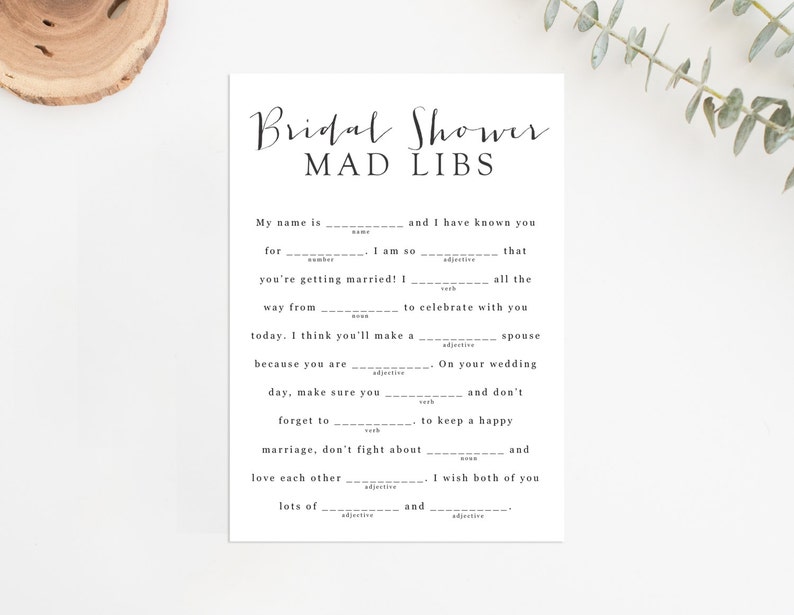 Bridal Shower
MAD LIBS
My name is __________ and I have known you
name
for __________. I am so __________ that
number adjective
you're getting married! I __________ all the
verb
way from __________ to celebrate with you
noun
today. I think you'll make a __________ spouse
adjective
because you are __________. On your wedding
adjective
day, make sure you __________ and don't
verb
forget to __________. to keep a happy
verb
marriage, don't fight about __________ and
noun
love each other __________. I wish both of you
adjective
lots of __________ and __________.
adjective adjective